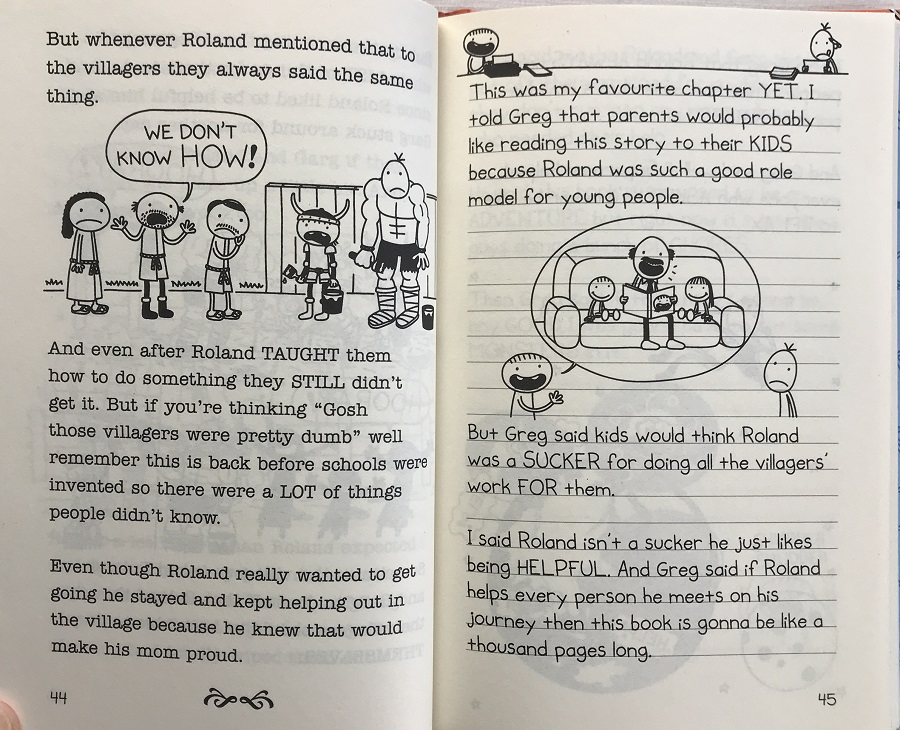 But whenever Roland mentioned that to
the villagers they always said the same
thing.
WE DON'T
KNOW HOW!
And even after Roland TAUGHT them
how to do something they STILL didn't
get it. But if you're thinking “Gosh
those villagers were pretty dumb” well
remember this is back before schools were
invented so there were a LOT of things
people didn't know.
Even though Roland really wanted to get
going he stayed and kept helping out in
the village because he knew that would
make his mom proud.
44
This was my favourite chapter YET.
told Greg that parents would probably
like reading this story to their KIDS
because Roland was such a good role
model for young people.
But Greg said kids would think Roland
was a SUCKER for doing all the villagers'
work FOR them.
I said Roland isn't a sucker he just likes
being HELPFUL. And Greg said if Roland
helps every person he meets on his
journey then this book is gonna be like a
thousand pages long.
45